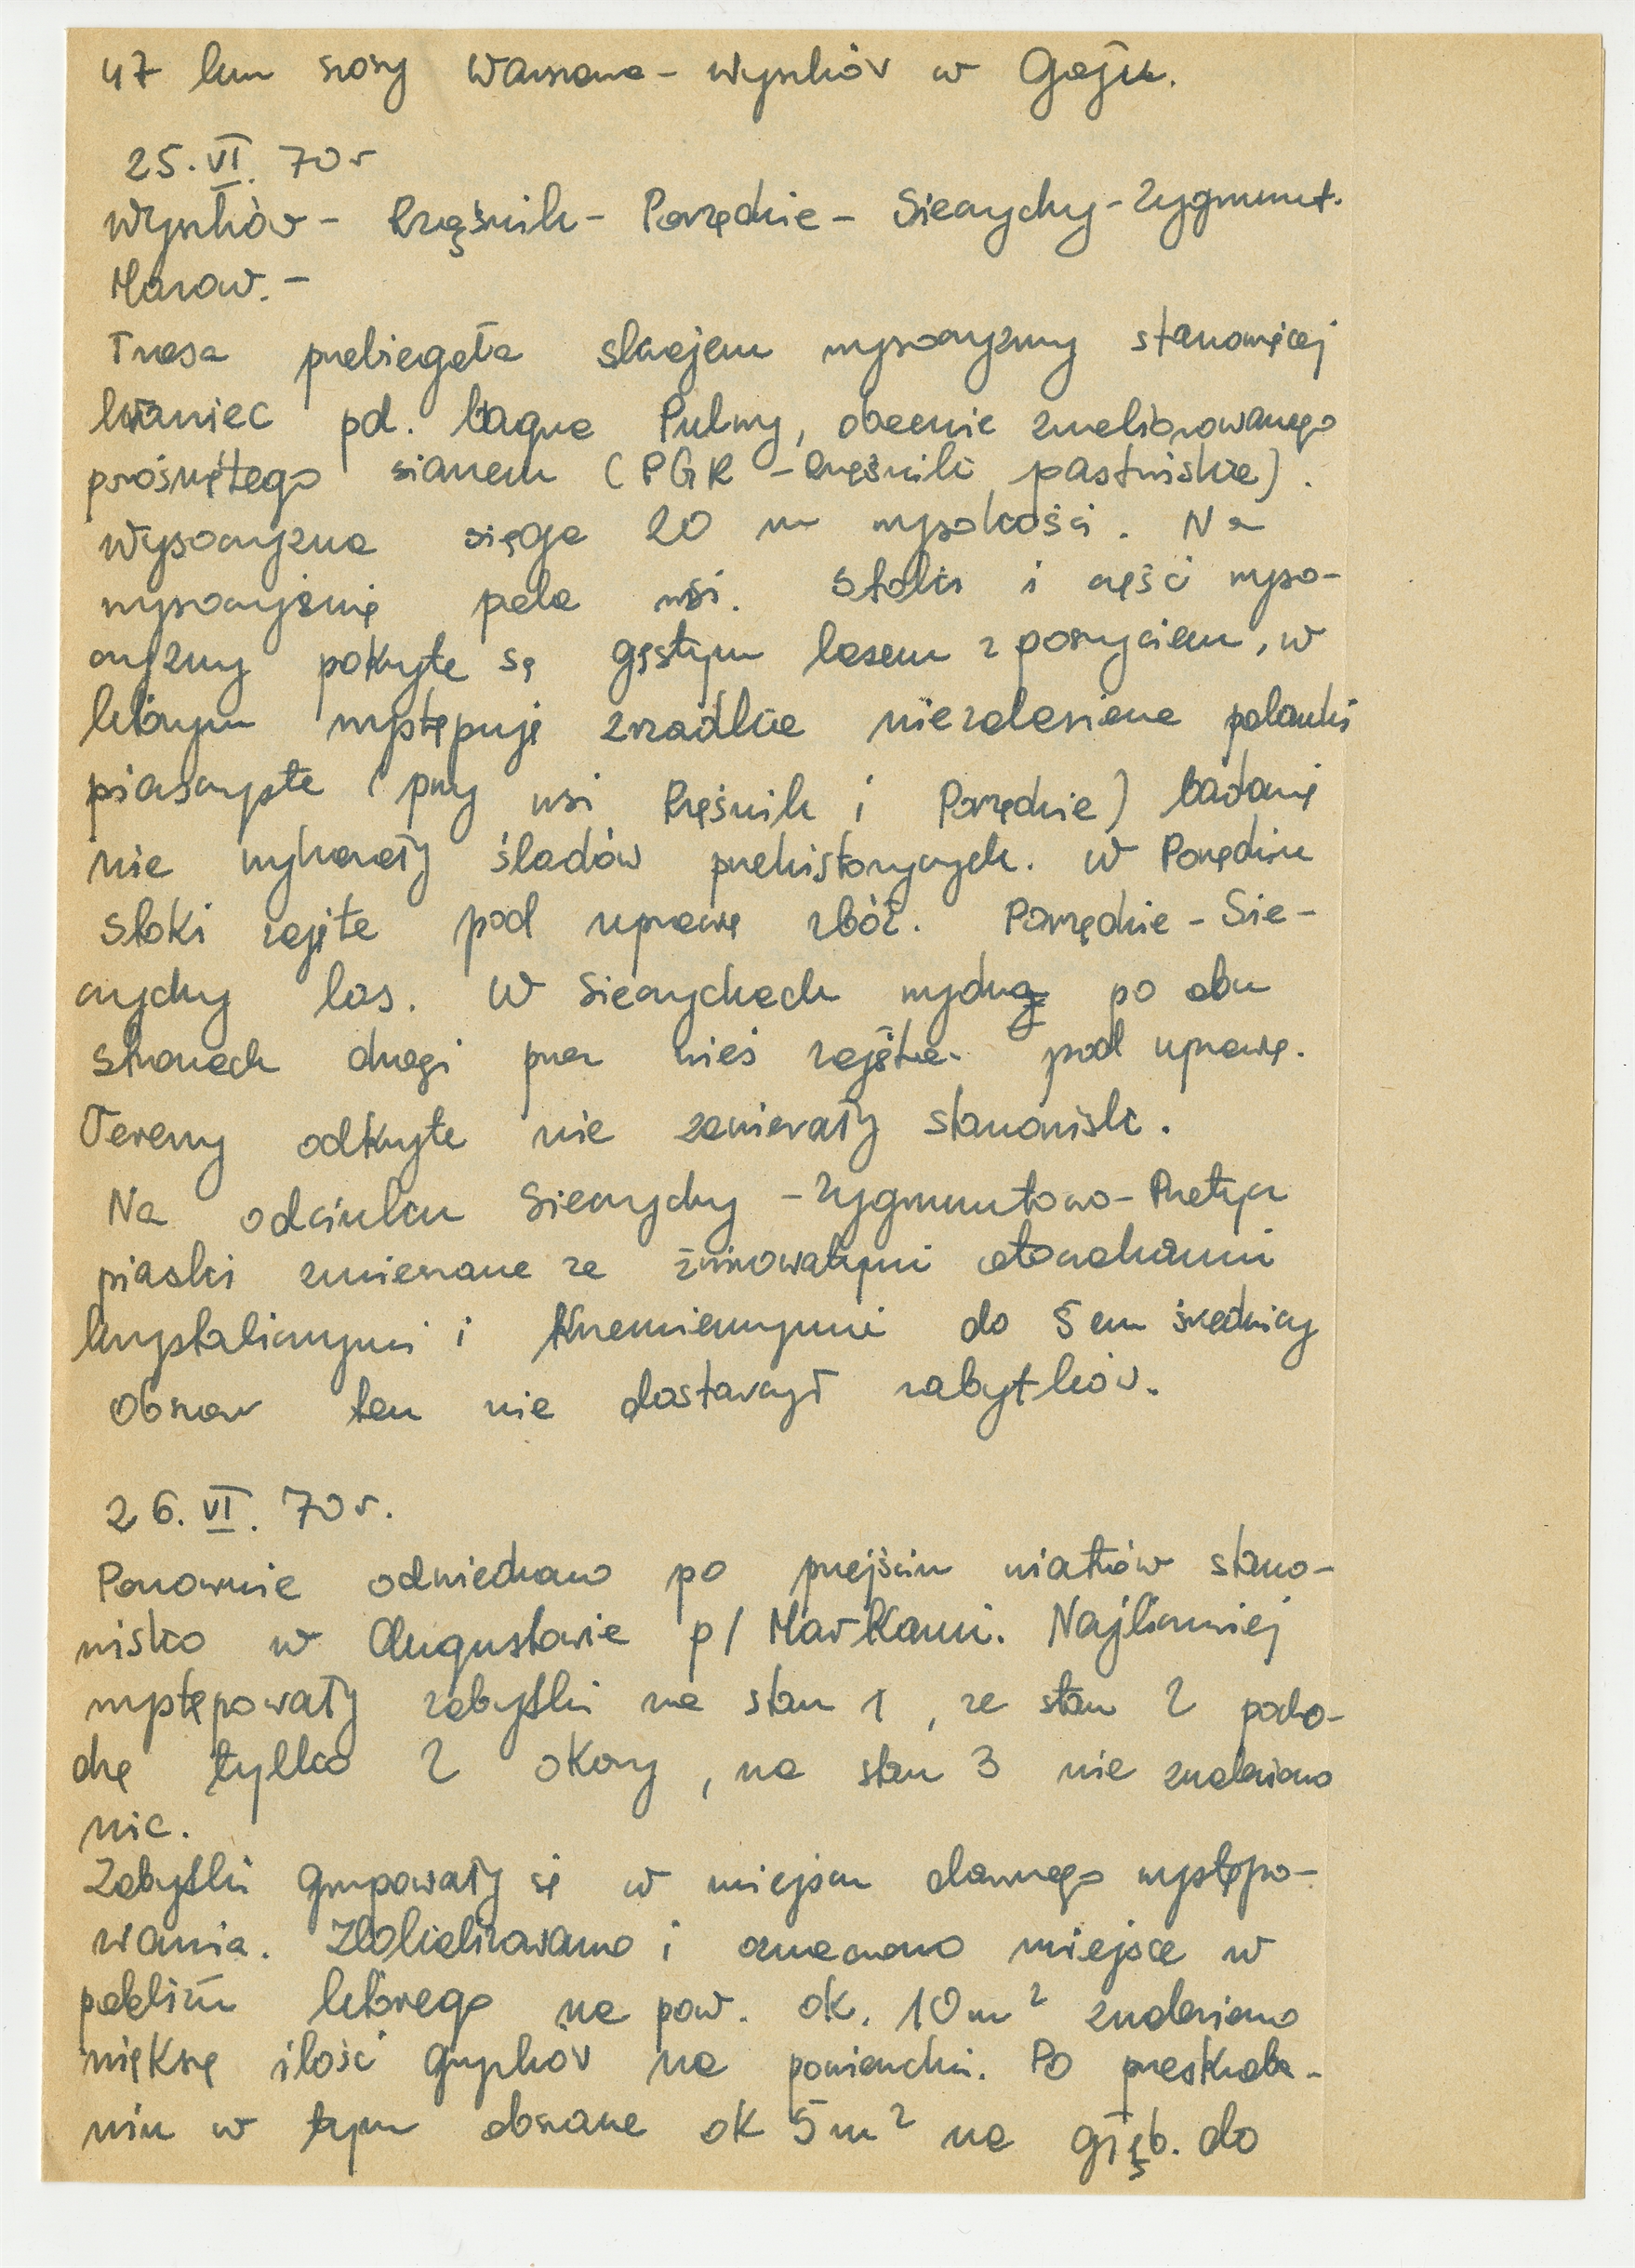 47 km szosy Warszawa - Wyszków w Gaju.
25.VI.70r
Wyszków - Rząśnik - Porządzie - Sieczychy - Zygmunt.
Mazow. -
Trasa przebiegała skrajem wysoczyzny stanowiącej
kraniec pd. bagna Pulwy, obecnie zmeliorowanego
porośniętego sianem (PGR - Rząśnik, pastwiska).
Wysoczyzna sięga 20 m wysokości. Na
wysoczyźnie pola wsi. Stoki i część wyso-
czyzny pokryte są gęstym lasem z poszyciem, w
którym występują z rzadka niezalesione polanki
piaszczyste (przy wsi Rząśnik i Porządzie) badanie
nie wykazały śladów prehistorycznych. W Porządziu
stoki zajęte pod uprawę zbóż. Porządzie - Sie-
czychy las. W Sieczychach wydmy po obu
stronach drogi przez wieś zajęte pod uprawę.
Tereny odkryte nie zawierały stanowisk.
Na odcinku Sieczychy - Zygmuntowo - Przetycz
piaski zmieszane ze żwirowatymi otoczakami
krystalicznymi i krzemiennymi do 5 cm średnicy
Obszar ten nie dostarczył zabytków.
26.VI.70r.
Ponownie odwiedzano po przejściu wiatrów stano-
wisko w Augustowie p/ Markami. Najliczniej
występowały zabytki na stan 1, ze stan 2 pocho-
dzą tylko 2 okazy, na stan 3 nie znaleziono
nic.
Zabytki grupowały się w miejscu dawnego występo-
wania. Zlokalizowano i oznaczono miejsce w
pobliżu którego na pow. ok. 10 m² znaleziono
większą ilość gryzków na powierzchni. Po przeskroba-
niu w tym obszarze ok 5 m² na głęb. do